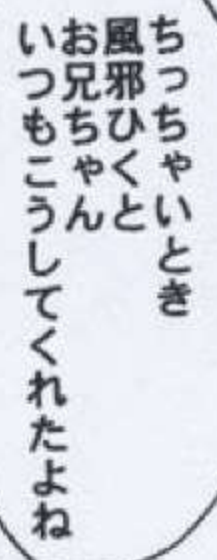 ちっちゃいとき
風邪ひくと
お兄ちゃん
いつもこうしてくれたよね